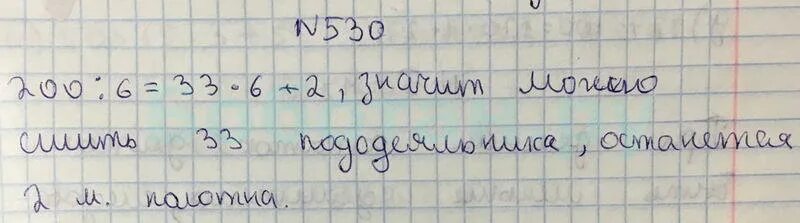 N530
200 : 6 = 33 · 6 + 2, значит можно
сшить 33 пододеяльника, останется
2 м. полотна.